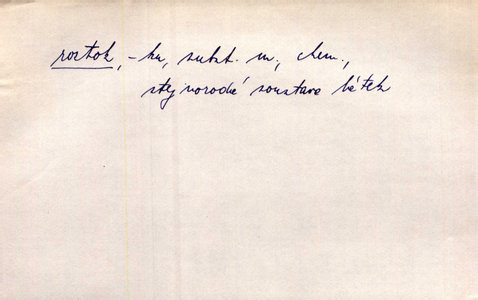 roztok, -ku, subst. m., chem.,
stejnorodá soustava látek